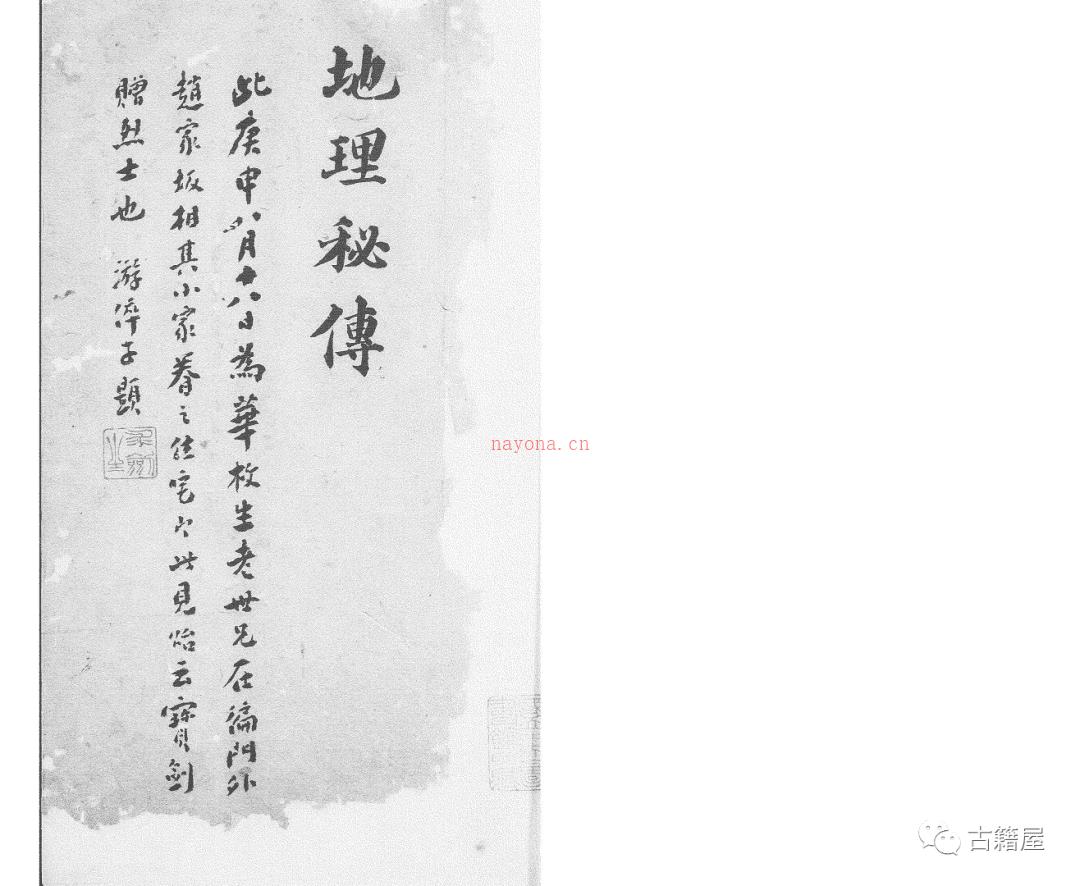 地理秘傳
此庚申八月十八日為華枚生老世兄在徧門外
趙家坂相其小家眷之住宅以此見怡云寶劍
贈烈士也 游倅子題
nayona.cn
古籍屋